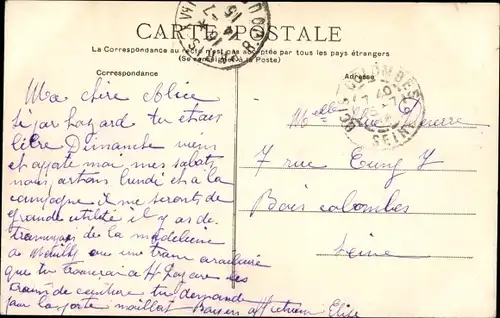 CARTE POSTALE
La Correspondance au recto n'est pas acceptée par tous les pays étrangers
(Se renseigner à la Poste)
Correspondance
Adresse
Ma chère Alice
si par hazard tu étais
libre Dimanche viens
et apporte moi mes sabots
nous partons lundi et à la
campagne il me seront de
grande utilité il y a des
tramways de la madeleine
de Neuilly ou une tram
que tu trouverai a St Lazare
de ceinture tu demande
la porte maillot Baisers affectueux Elise
Melle
7 rue
Bois colombes
Seine
COLOMBES
SEINE